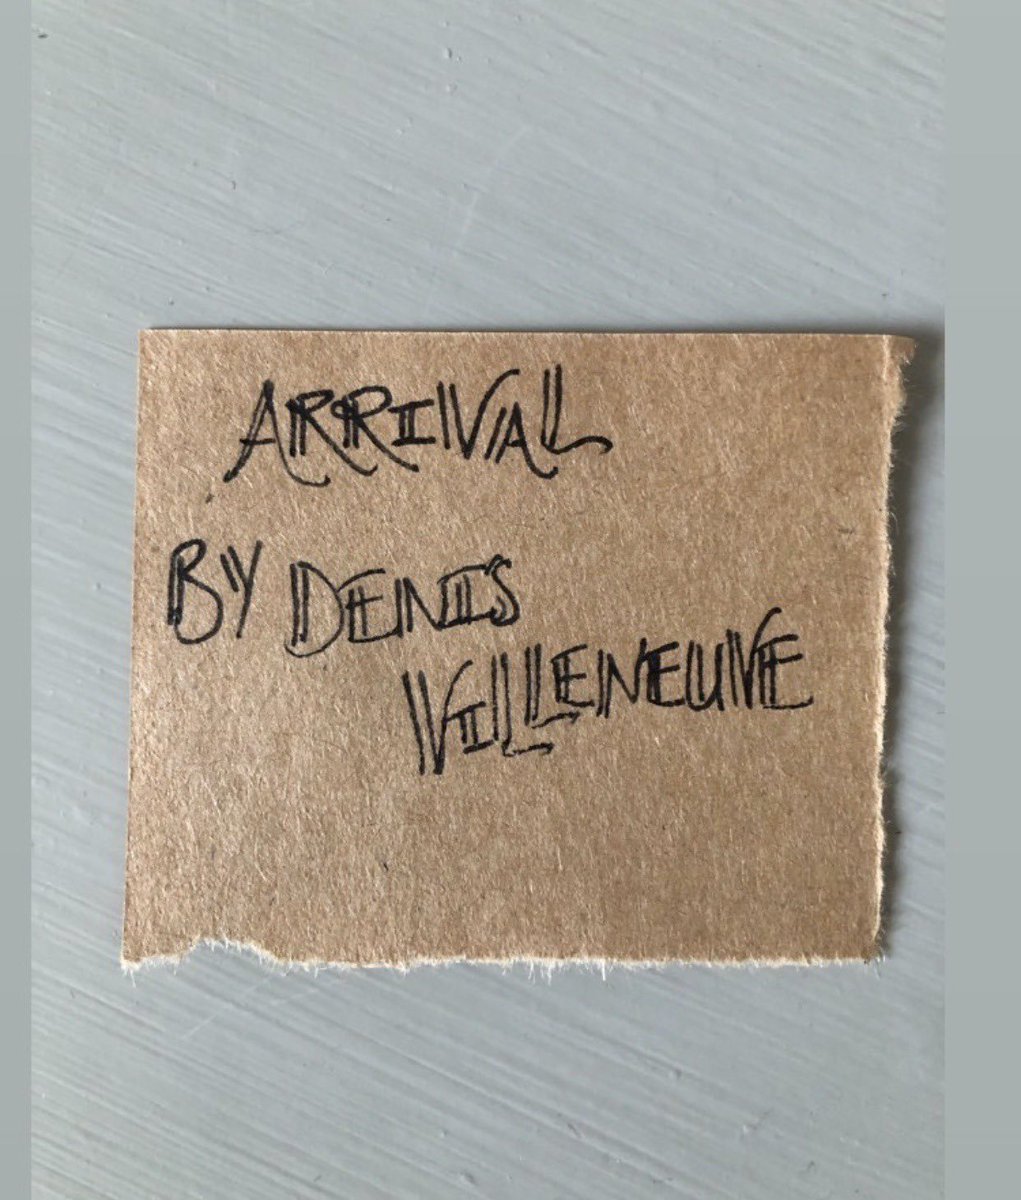 ARRIVAL
BY DENIS
VILLENEUVE